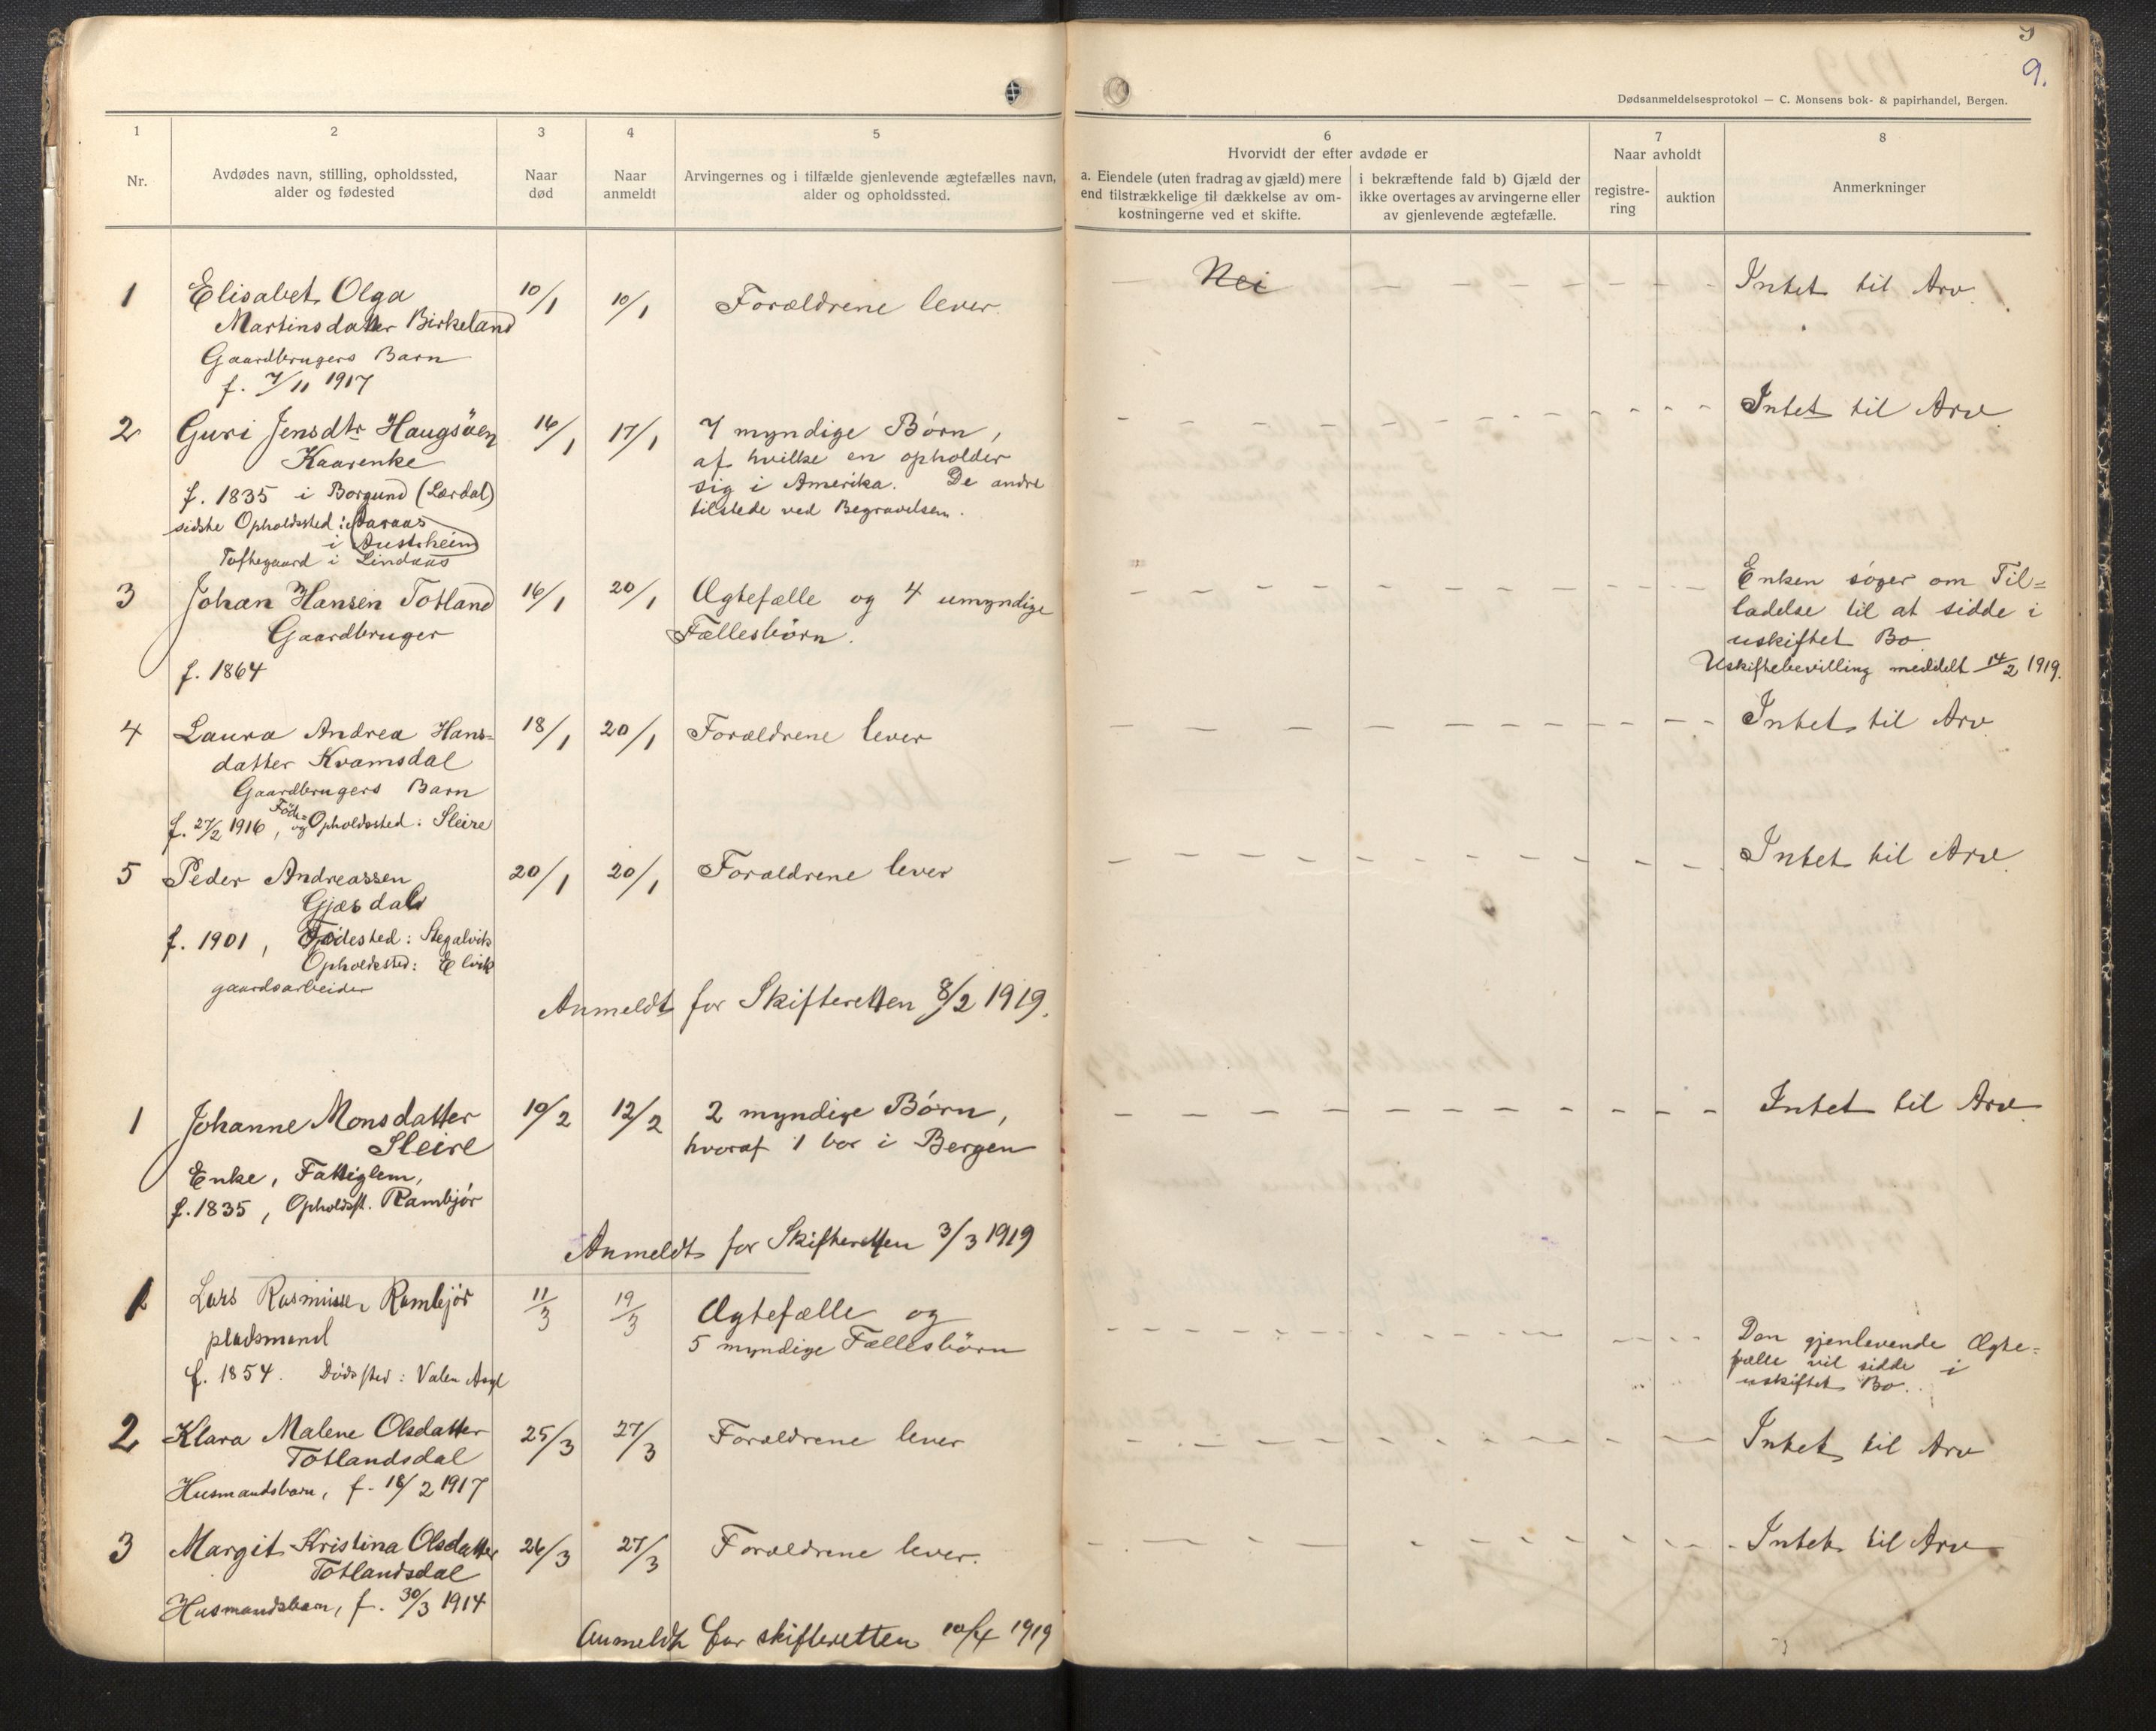 9.
Dødsanmeldelsesprotokol — C. Monsens bok- & papirhandel, Bergen.
1
Nr.
2
Avdødes navn, stilling, opholdssted,
alder og fødested
3
Naar
død
4
Naar
anmeldt
5
Arvingernes og i tilfælde gjenlevende ægtefælles navn,
alder og opholdssted.
6
Hvorvidt der efter avdøde er
a. Eiendele (uten fradrag av gjæld) mere
end tilstrækkelige til dækkelse av om-
kostningerne ved et skifte.
i bekræftende fald b) Gjæld der
ikke overtages av arvingerne eller
av gjenlevende ægtefælle.
7
Naar avholdt
registre-
ring
auktion
8
Anmerkninger
1 Elisabet Olga 10/1 10/1 Forældrene lever. — Nei — Intet til Arv.
Martinsdatter Birkeland
Gaardbrugers Barn
f. 7/11 1917
2 Guri Jensdtr Haugsöen 16/1 17/1 7 myndige Børn, Intet til Arv
Kaarenke af hvilke en opholder
f. 1835 i Borgund (Lærdal) sig i Amerika. De andre
sidste Opholdssted: tilstede ved Begravelsen.
i Austrheim
Toftegaard i Lindaas
3 Johan Hansen Totland 16/1 20/1 Ægtefælle og 4 umyndige Enken søger om Til=
Gaardbruger Fællesbörn. ladelse til at sidde i
uskiftet Bo.
f. 1864 Uskiftebevilling meddelt 14/2 1919.
4 Laura Andrea Hans= 18/1 20/1 Forældrene lever Intet til Arv
datter Kvamsdal
Gaardbrugers Barn
f. 27/2 1916, Föde= og Opholdssted: Sleire
5 Peder Andreassen 20/1 20/1 Forældrene lever Intet til Arv.
Gjæsdal
f. 1901, Födested: Stegalvik
Opholdssted: Elvik
gaardsarbeider
Anmeldt for Skifteretten 8/2 1919.
1 Johanne Monsdatter 10/2 12/2 2 myndige Børn, Intet til Arv
Sleire hvoraf 1 bor i Bergen
Enke, Fattiglem,
f. 1835, Opholdsst. Rambjör
Anmeldt for Skifteretten 3/3 1919
1 Lars Rasmussen Rambjør 11/3 19/3 Ægtefælle og
pladsmand 5 myndige Fællesbörn Den gjenlevende Ægte=
f. 1854. Dødssted: Valen Asyl fælle vil sidde i
uskiftet Bo.
2 Klara Malene Olsdatter 25/3 27/3 Forældrene lever Intet til Arv
Totlandsdal
Husmandsbarn, f. 18/2 1917
3 Margit Kristina Olsdatter 26/3 27/3 Forældrene lever. Intet til Arv
Totlandsdal
Husmandsbarn, f. 30/3 1914
Anmeldt for skifteretten 10/4 1919